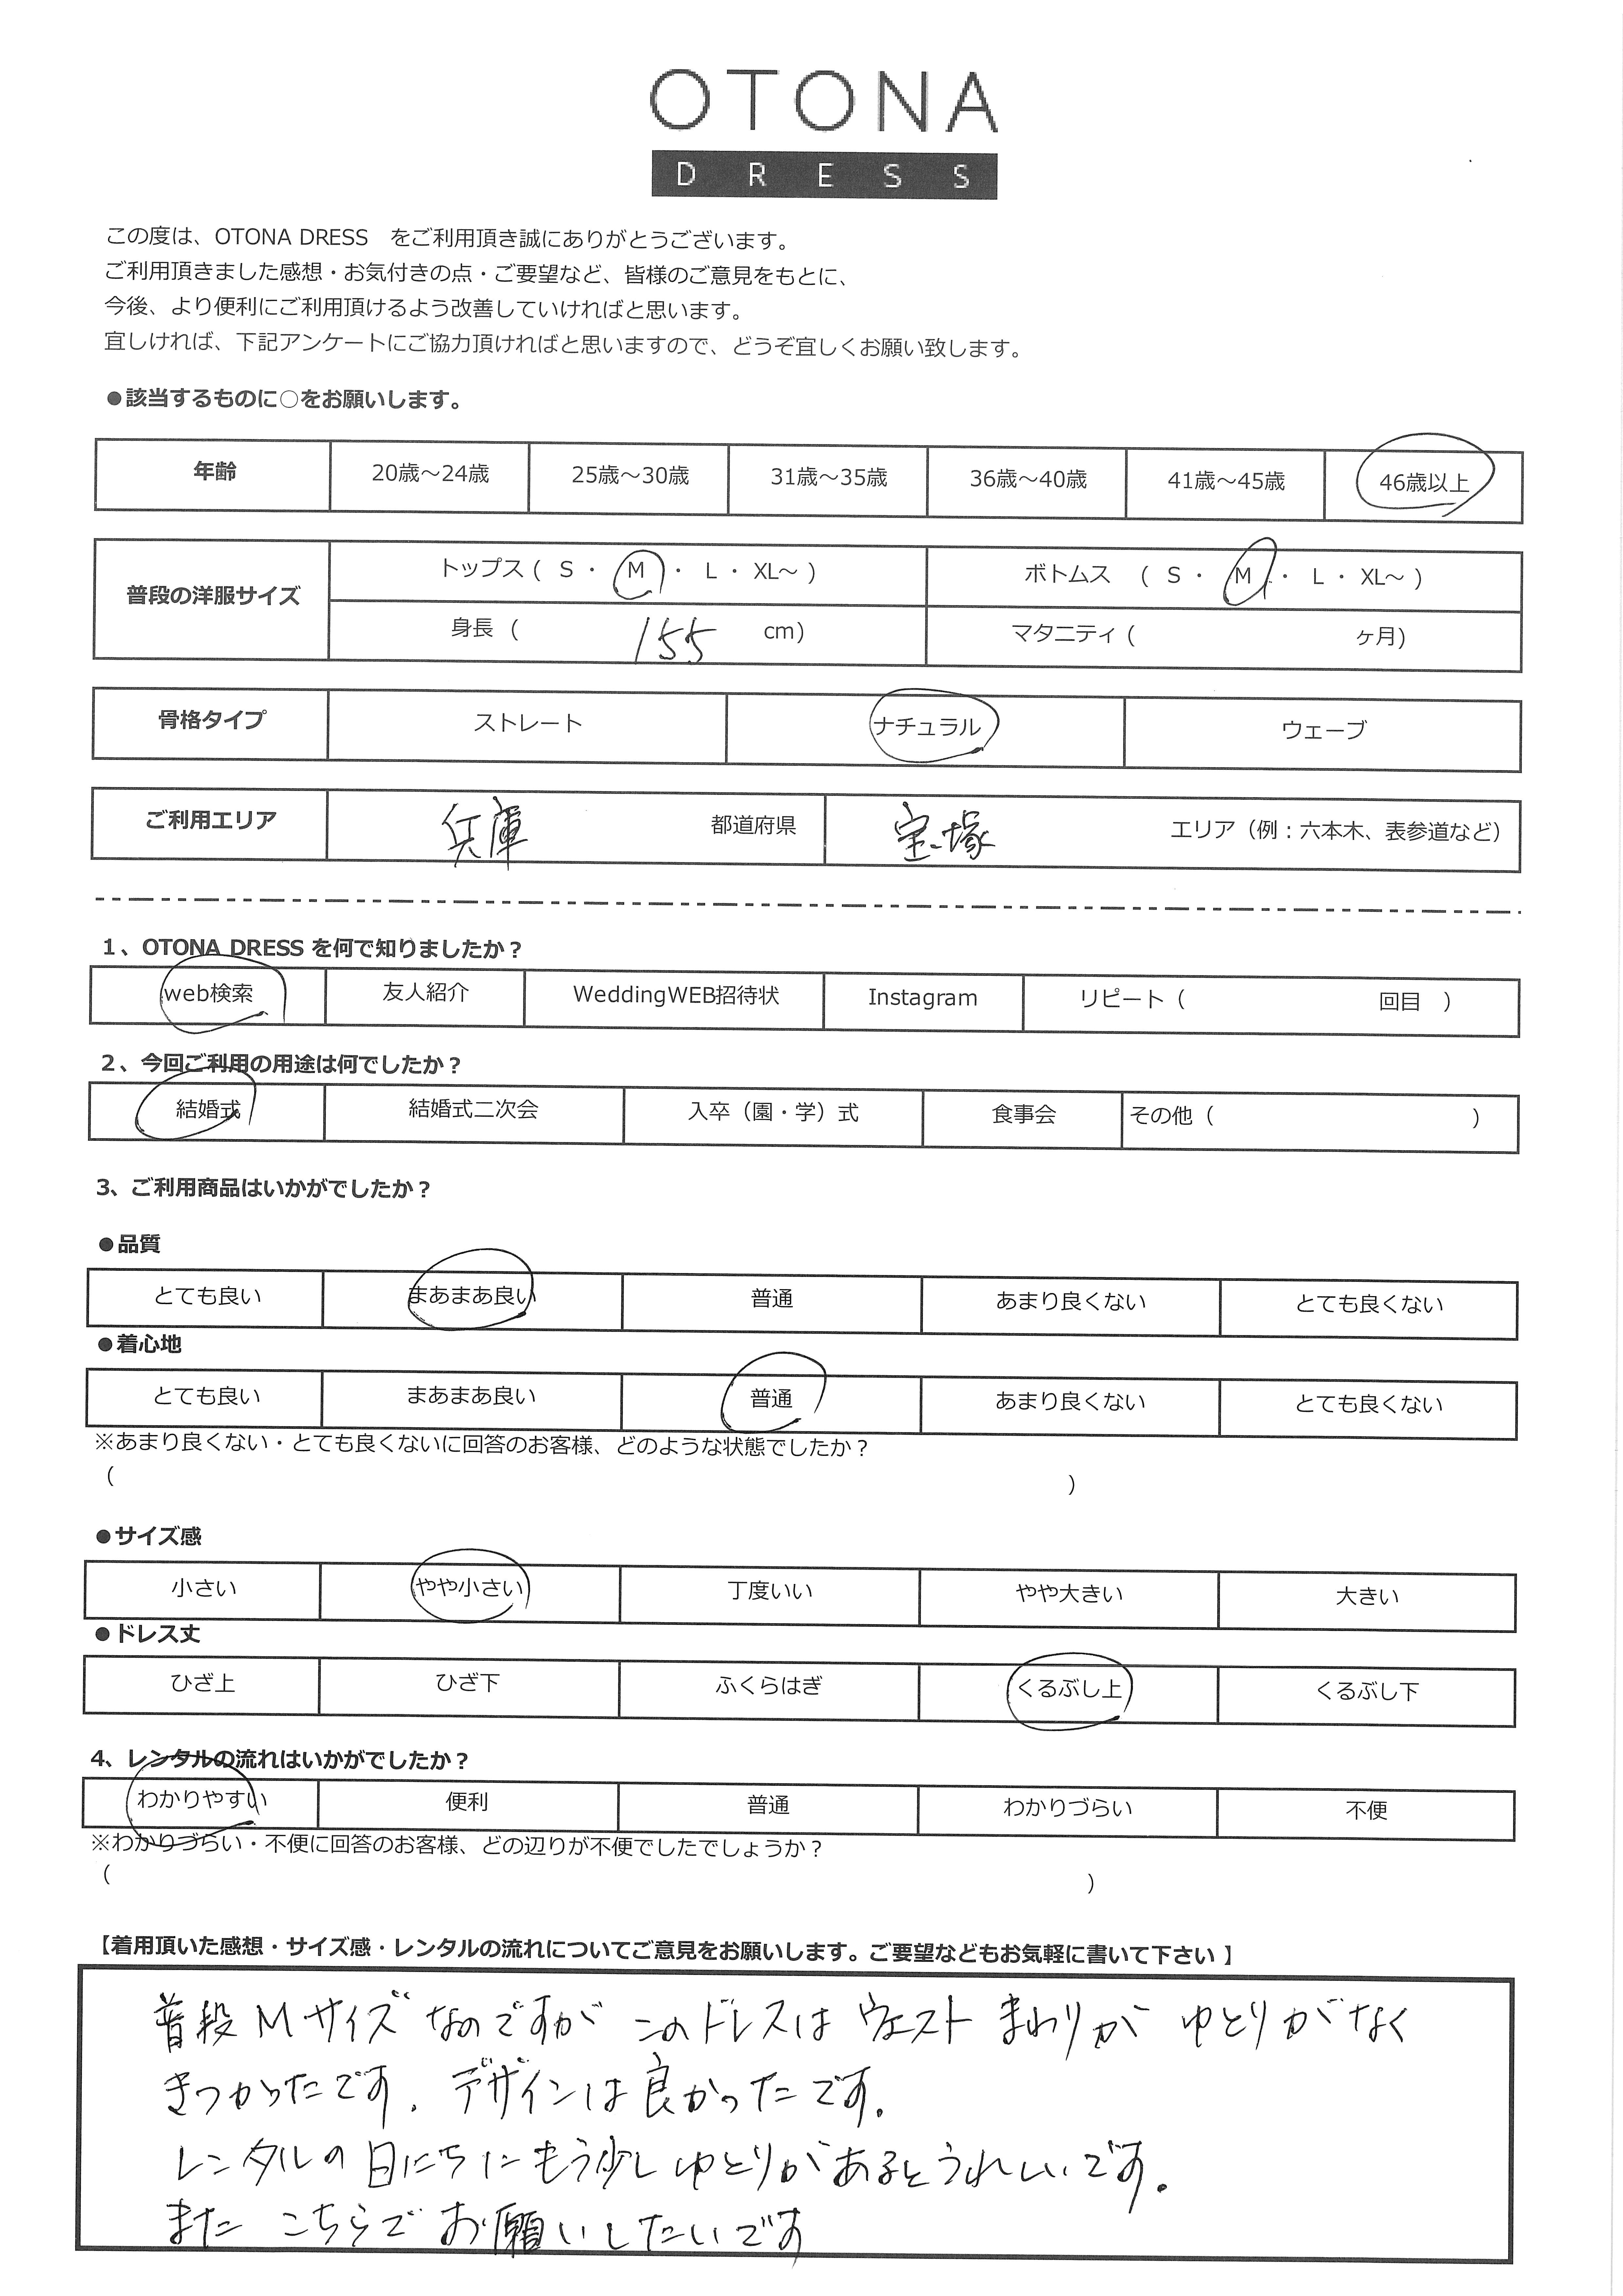 OTONA
DRESS
この度は、OTONA DRESS　をご利用頂き誠にありがとうございます。
ご利用頂きました感想・お気付きの点・ご要望など、皆様のご意見をもとに、
今後、より便利にご利用頂けるよう改善していければと思います。
宜しければ、下記アンケートにご協力頂ければと思いますので、どうぞ宜しくお願い致します。
●該当するものに○をお願いします。
年齢 20歳～24歳 25歳～30歳 31歳～35歳 36歳～40歳 41歳～45歳 46歳以上
普段の洋服サイズ
トップス ( S ・ M ・ L ・ XL～ ) ボトムス ( S ・ M ・ L ・ XL～ )
身長 ( 155 cm) マタニティ ( ヶ月)
骨格タイプ ストレート ナチュラル ウェーブ
ご利用エリア 兵庫 都道府県 宝塚 エリア（例：六本木、表参道など）
1、OTONA DRESS を何で知りましたか？
web検索 友人紹介 WeddingWEB招待状 Instagram リピート（ 回目 ）
2、今回ご利用の用途は何でしたか？
結婚式 結婚式二次会 入卒（園・学）式 食事会 その他（ ）
3、ご利用商品はいかがでしたか？
●品質
とても良い まあまあ良い 普通 あまり良くない とても良くない
●着心地
とても良い まあまあ良い 普通 あまり良くない とても良くない
※あまり良くない・とても良くないに回答のお客様、どのような状態でしたか？
（ ）
●サイズ感
小さい やや小さい 丁度いい やや大きい 大きい
●ドレス丈
ひざ上 ひざ下 ふくらはぎ くるぶし上 くるぶし下
4、レンタルの流れはいかがでしたか？
わかりやすい 便利 普通 わかりづらい 不便
※わかりづらい・不便に回答のお客様、どの辺りが不便でしたでしょうか？
（ ）
【着用頂いた感想・サイズ感・レンタルの流れについてご意見をお願いします。ご要望などもお気軽に書いて下さい 】
普段Mサイズなのですが このドレスは ウエスト まわりが ゆとりがなく
きつかったです。デザインは良かったです。
レンタルの日にちにもう少しゆとりがあるとうれしいです。
また こちらで お願いしたいです